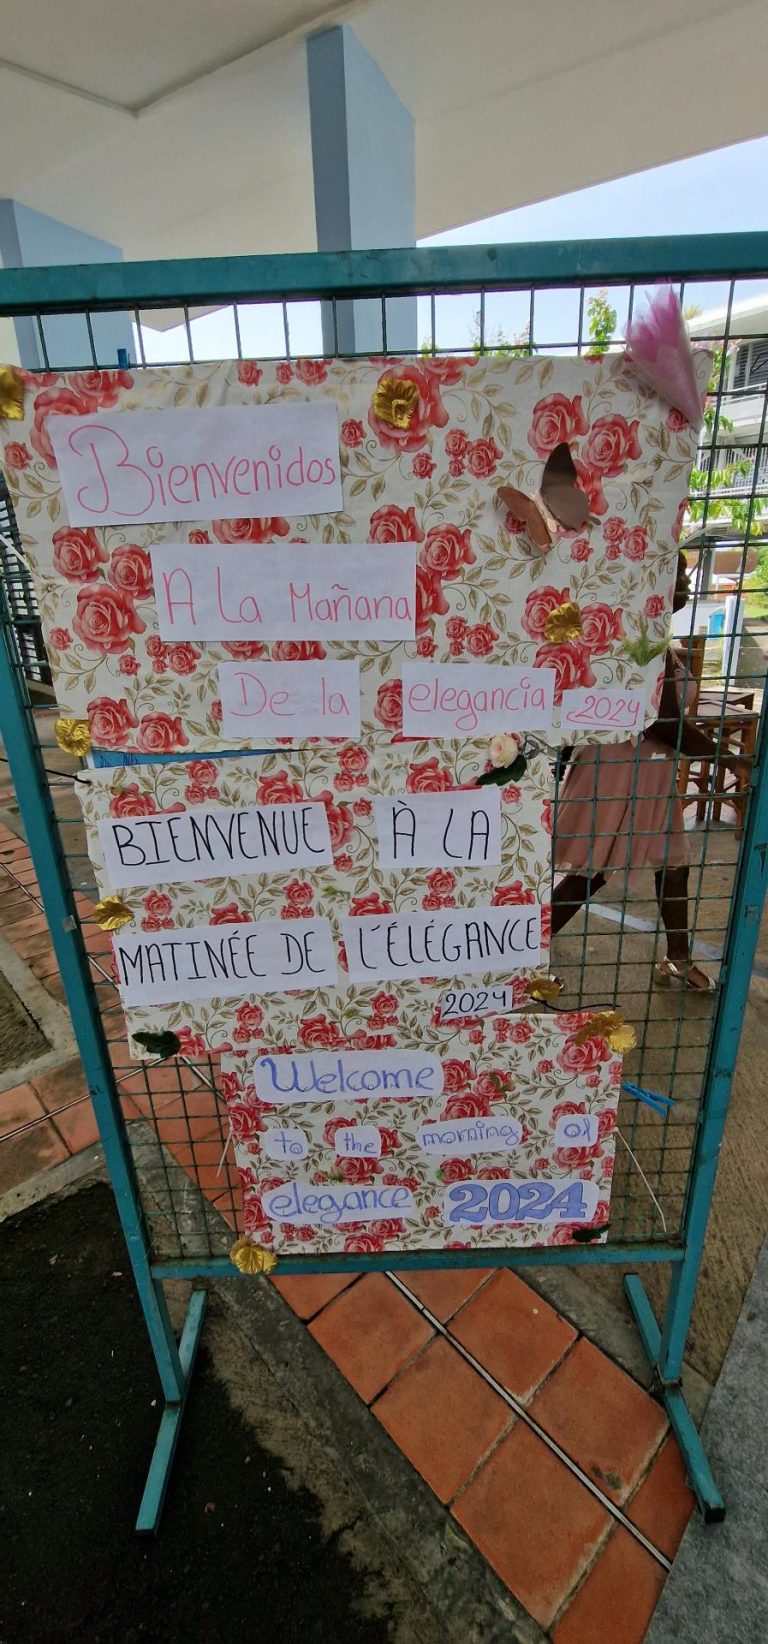 Bienvenidos
A La Mañana
De la elegancia 2024
BIENVENUE À LA
MATINÉE DE L'ÉLÉGANCE
2024
Welcome
to the morning of
elegance 2024